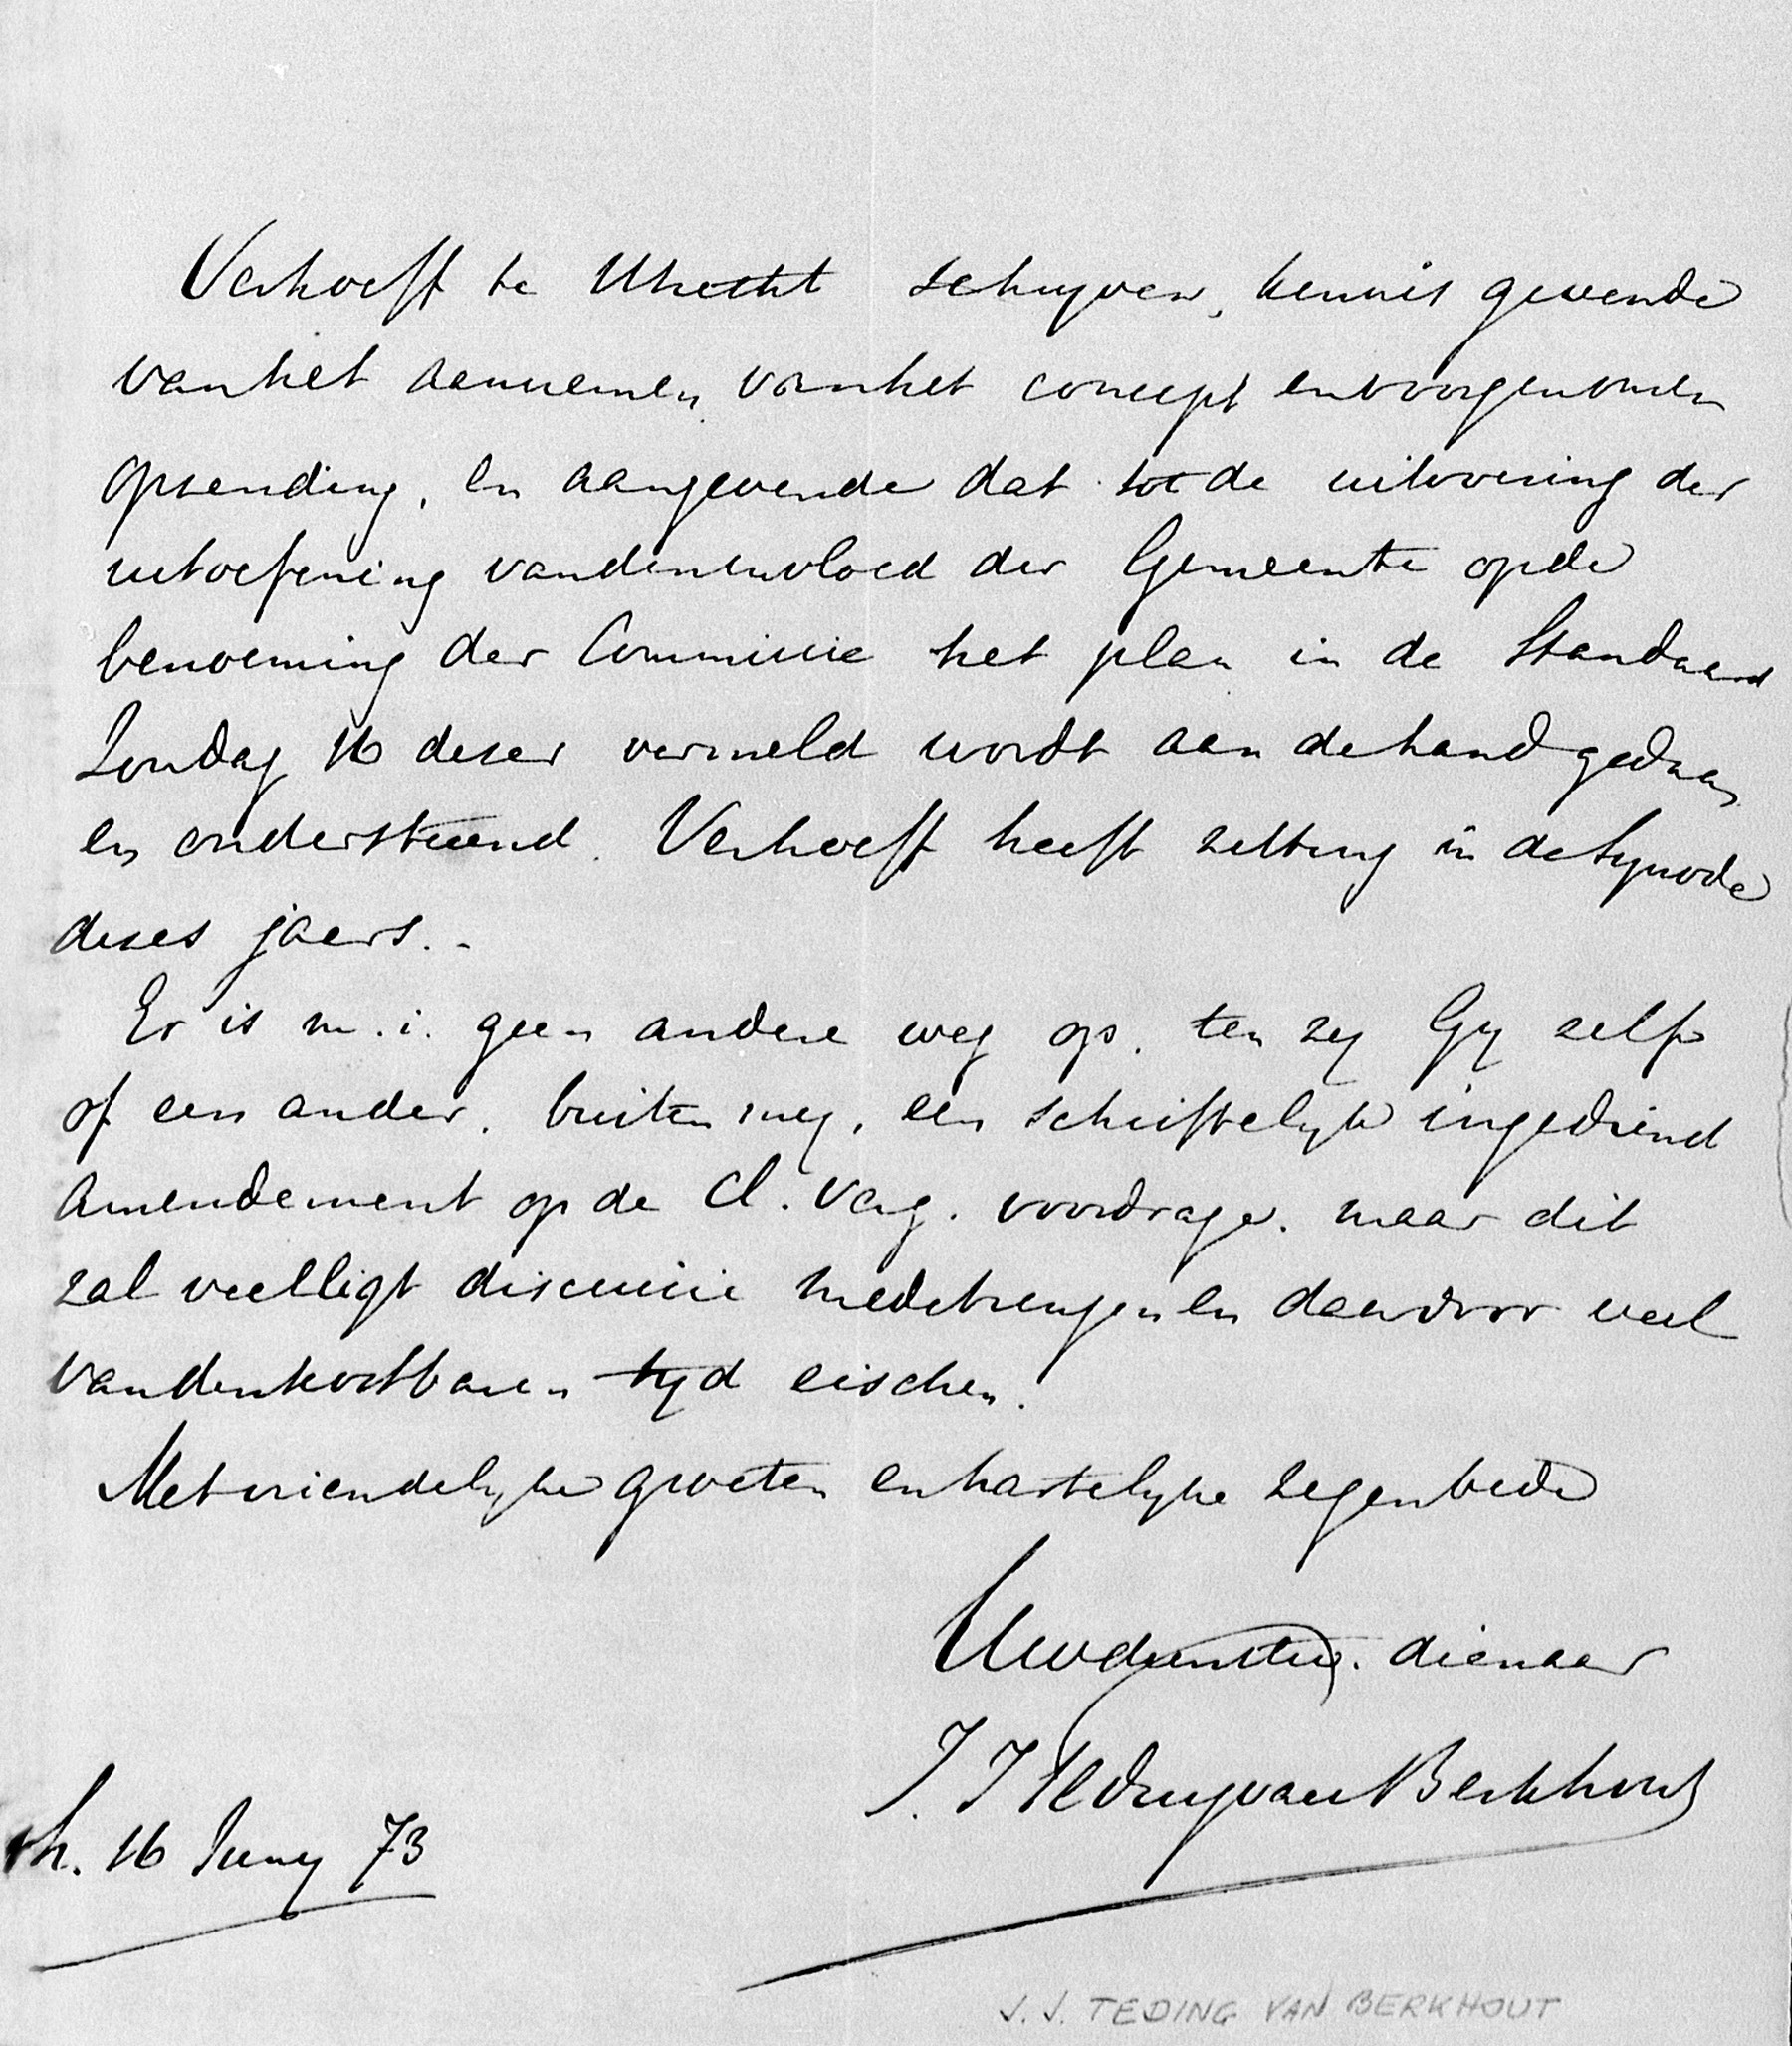 Verhoeff te Utrecht schryven, kennis gevende
van het aannemen van het concept en voorgenomen
opzending, en aangevende dat tot de uitvoering der
uitoefening van den invloed der Gemeente op de
benoeming der Commissie het plan in de Standaard
Zondag 16 dezer vermeld wordt aan de hand gedaan
en ondersteund. Verhoeff heeft zitting in de Synode
dezes jaars.-
Er is m.i. geen andere weg op, ten zy Gy zelf
of een ander, buiten my, een schriftelyk ingediend
Amendement op de Cl. Verg. voordrage. maar dit
zal veelligt discussie medebrengen en daardoor veel
van den kostbaren tyd eischen.
Met vriendelyke groeten en hartelyke zegenbede
Uwdienstw. dienaar
J. J Teding van Berkhout
16 Juny 73
J. J. TEDING VAN BERKHOUT